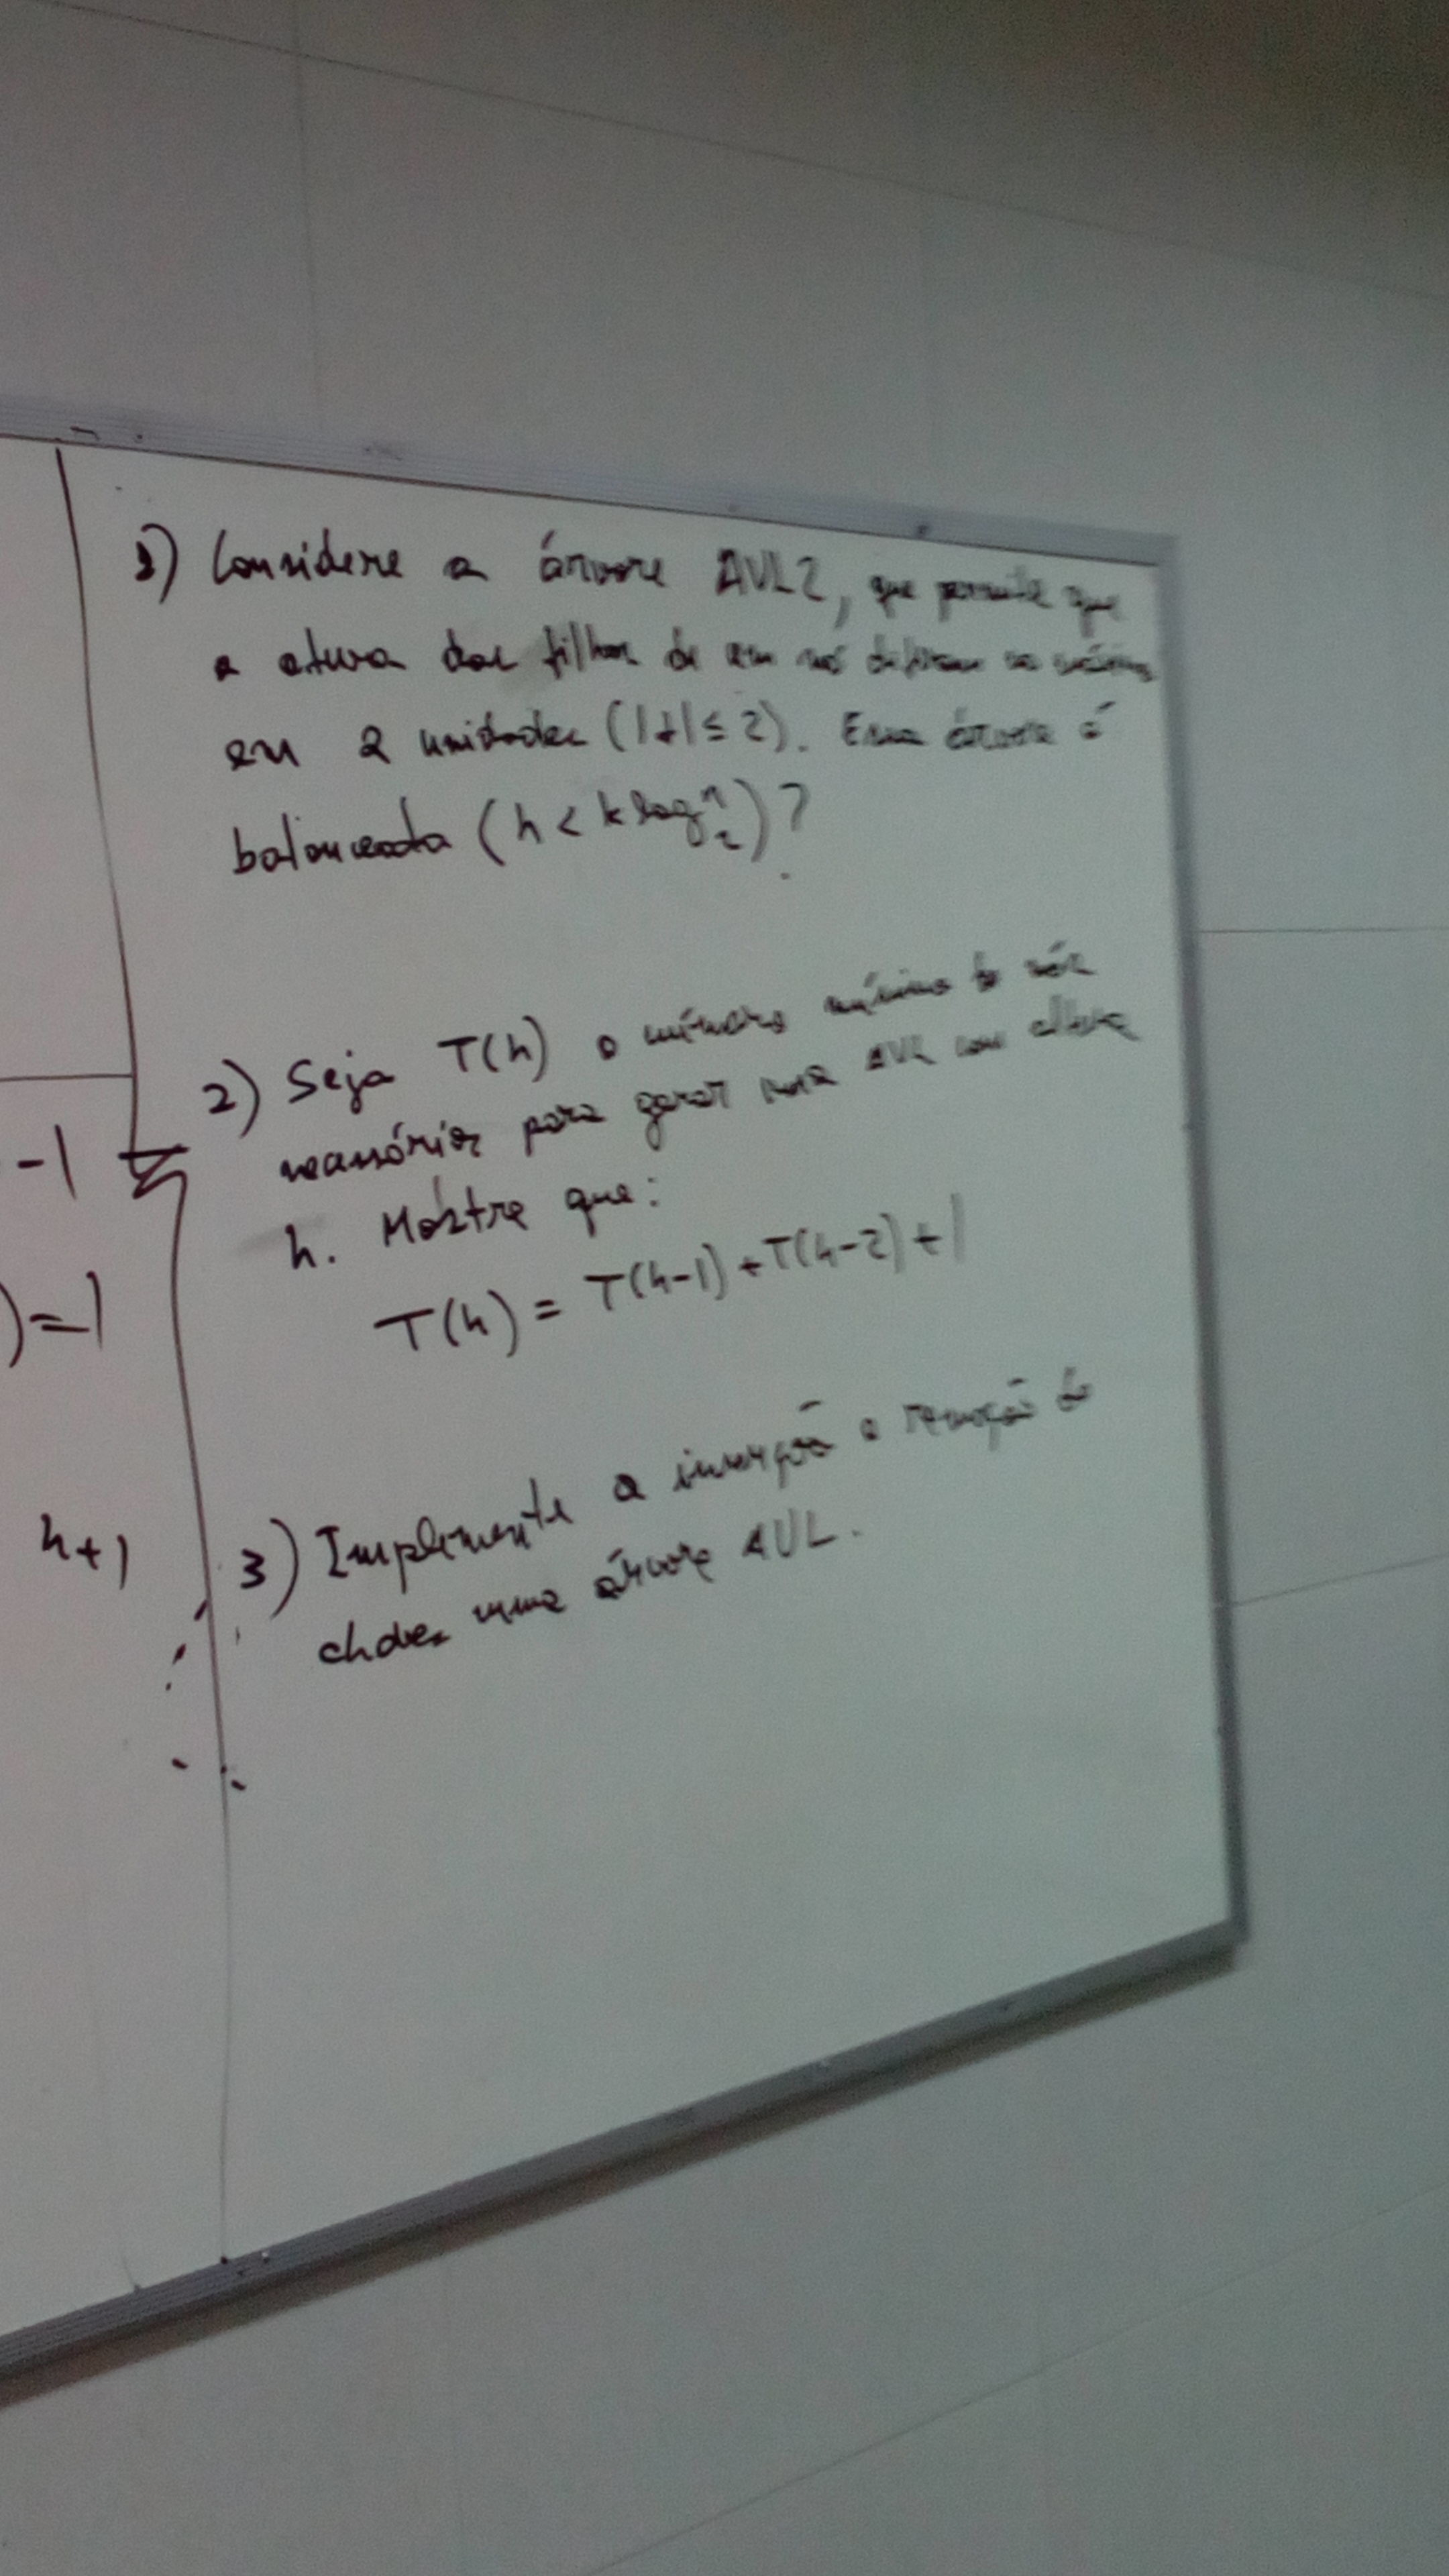 1) Considere a árvore AVL2, que permite que
a altura dos filhos de um nó difiram no máximo
em 2 unidades (|f| ≤ 2). Essa árvore é
balanceada (h < k log₂ⁿ)?
2) Seja T(h) o número mínimo de nós
necessários para gerar uma AVL com altura
h. Mostre que:
T(h) = T(h-1) + T(h-2) + 1
3) Implemente a inserção e remoção de
chaves numa árvore AVL.
-1
)=1
h+1